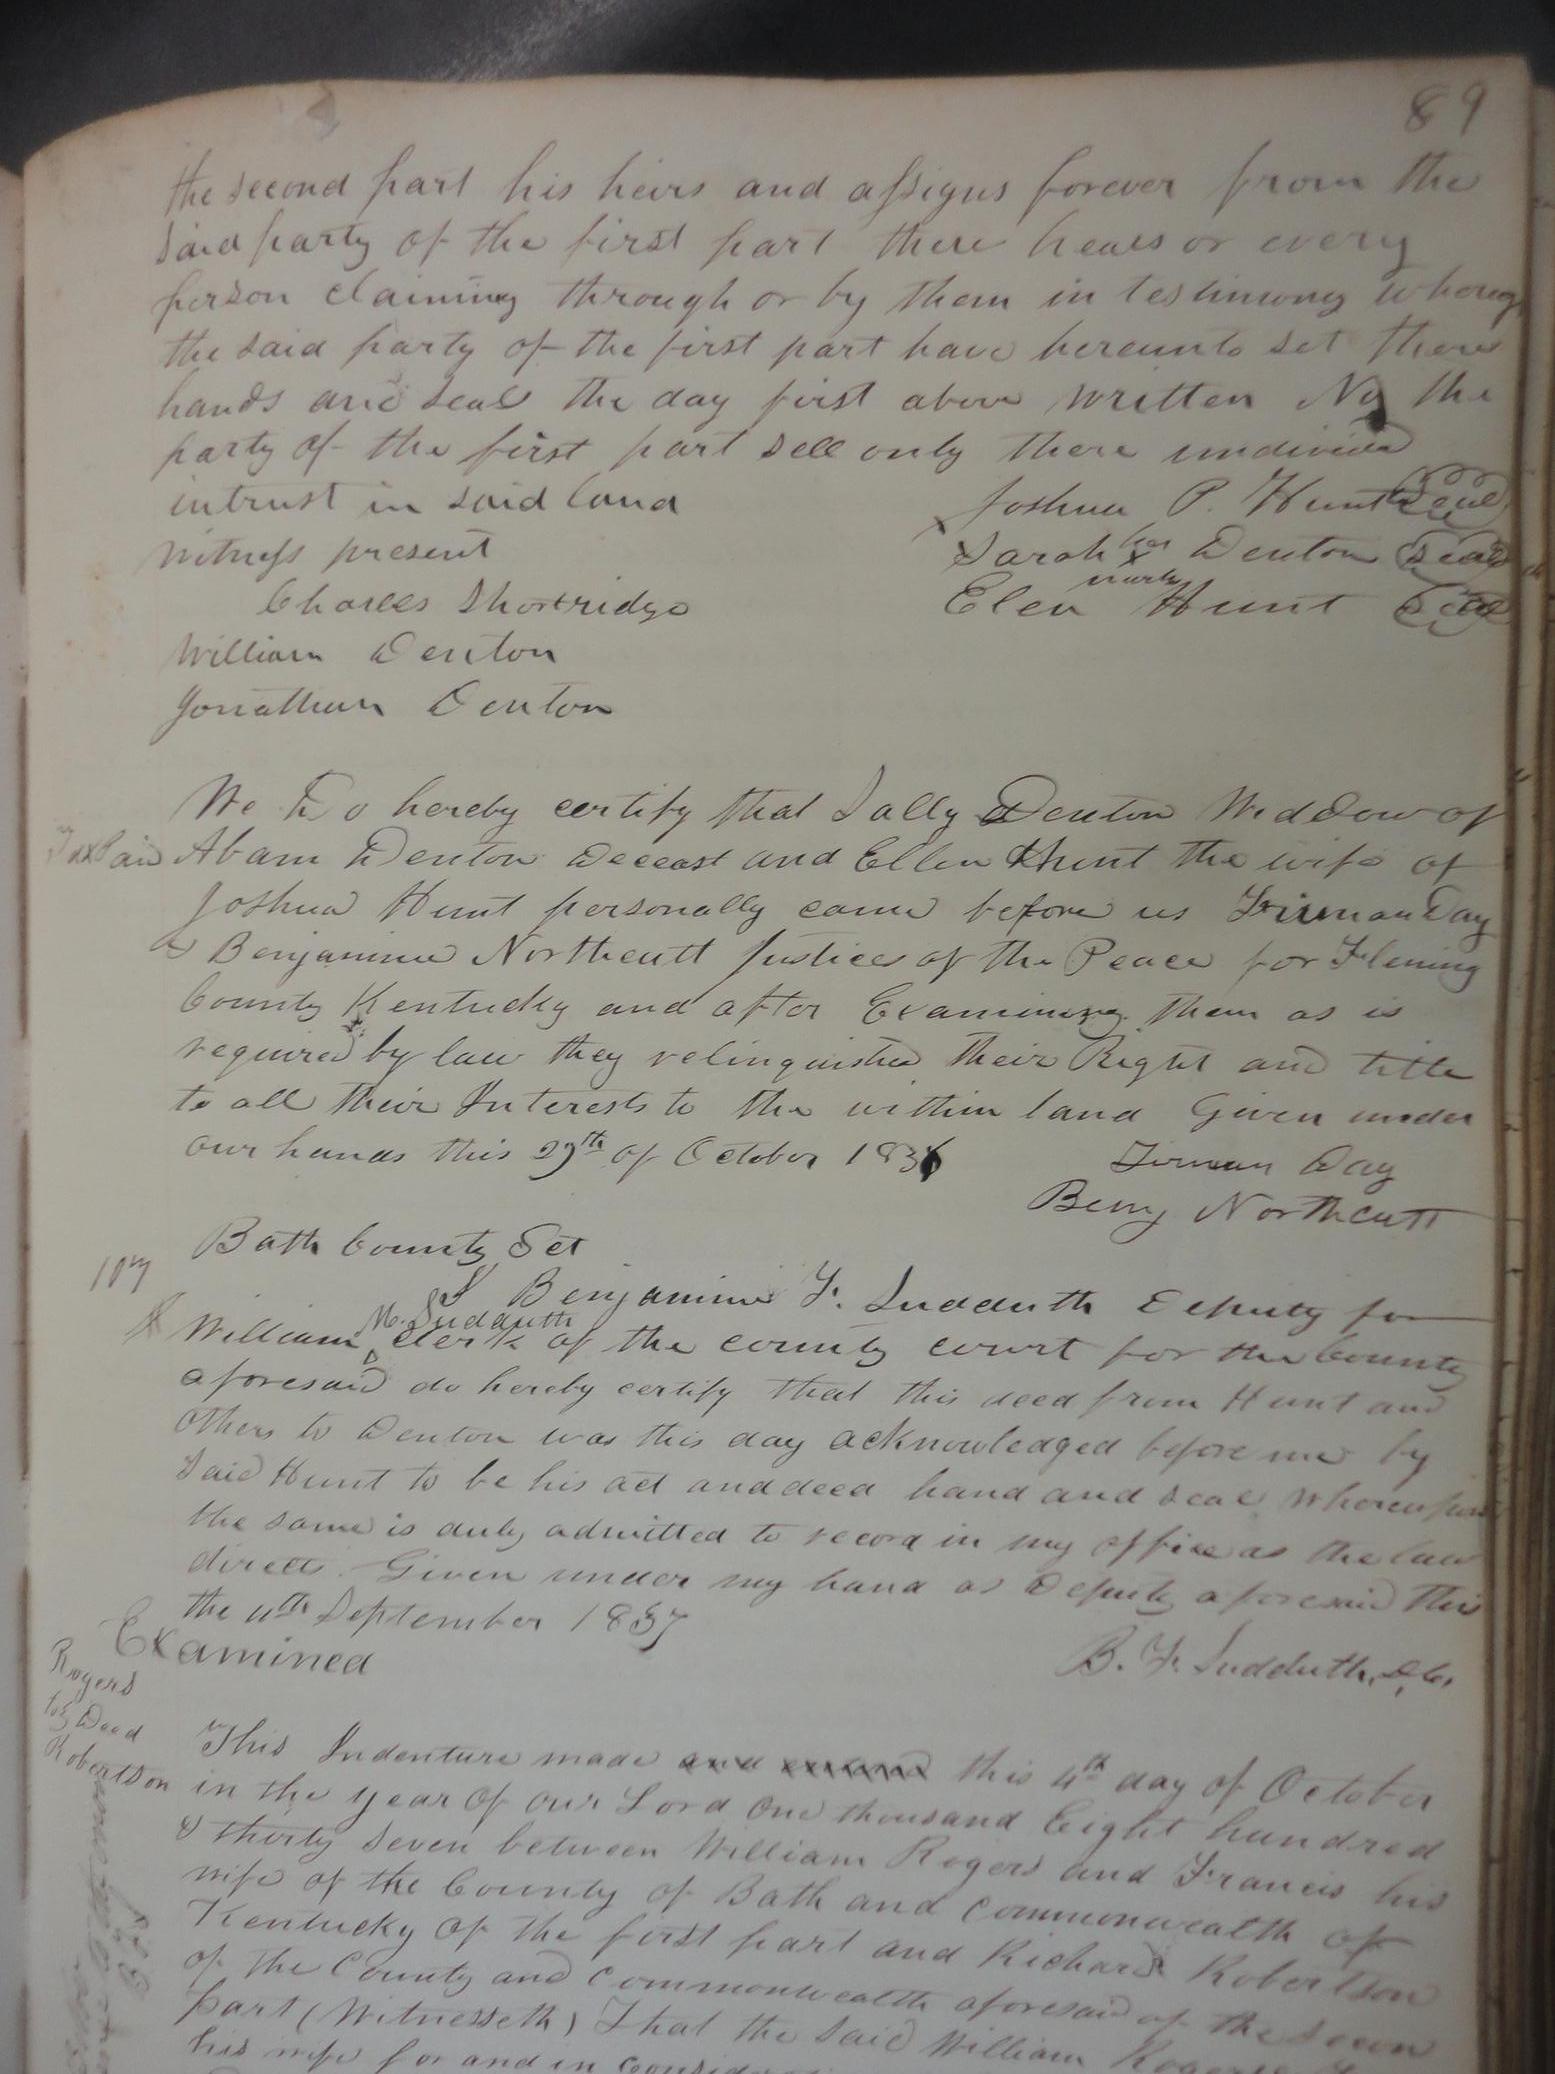 89
the second part his heirs and assigns forever from the
said party of the first part there hears or every
person claiming through or by them in testimony whereof
the said party of the first part have hereunto set there
hands and seal the day first above written the
party of the first part sell only there undivided
intrust in said land
Joshua P. Hunt Seal
Witness present
Sarah her x Denton Seal
mark
Charles Shortridge
Elen Hunt Seal
William Denton
Jonathan Denton
We Do hereby certify that Sally Denton Weddow of
Tax Paid
Abam Denton Deceast and Ellen Hunt the wife of
Joshua Hunt personally came before us Firman Day
& Benjamine Northcutt Justices of the Peace for Fleming
County Kentucky and after Examining them as is
required by law they relinquished their Right and title
to all their Interests to the within land Given under
our hands this 29th of October 1836
Firman Day
Benj Northcutt
Bath County Sct
I Benjamine F. Sudduth Deputy for
M. Sudduth
William clerk of the county court for the County
aforesaid do hereby certify that this deed from Hunt and
others to Denton was this day acknowledged before me by
said Hunt to be his act and deed hand and seal whereupon
the same is duly admitted to record in my office as the law
directs. Given under my hand as Deputy aforesaid this
the 11th September 1837
Examined
B. F. Sudduth, D.C.
Rogers
to } Deed
Robertson
This Indenture made and this 4th day of October
in the year of our Lord One thousand Eight hundred
& thirty seven between William Rogers and Francis his
wife of the County of Bath and commonwealth of
Kentucky of the first part and Richard Robertson
of the County and commonwealth aforesaid of the secon
part (Witnesseth) That the said William Rogers
his wife for and in